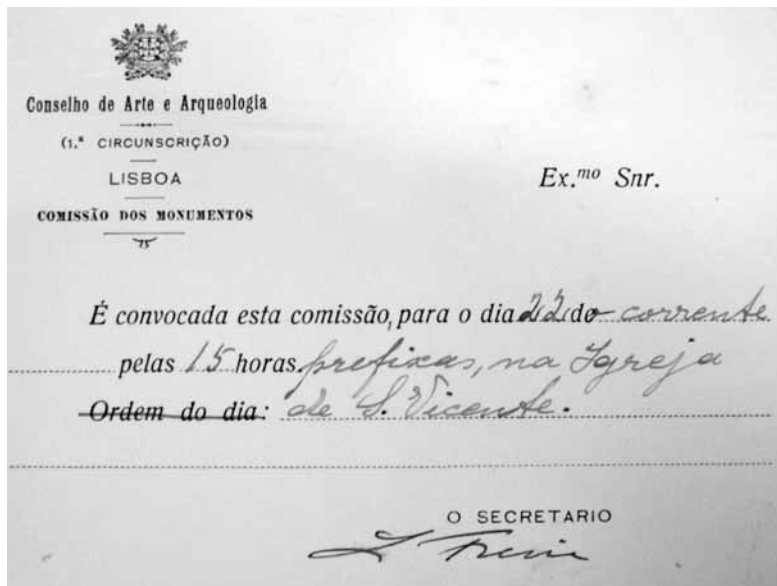 Conselho de Arte e Arqueologia
(1.ª CIRCUNSCRIÇÃO)
LISBOA
COMISSÃO DOS MONUMENTOS
Ex.mo Snr.
É convocada esta comissão, para o dia 22 do corrente
pelas 15 horas prefixas, na Igreja
Ordem do dia: de S. Vicente.
O SECRETARIO